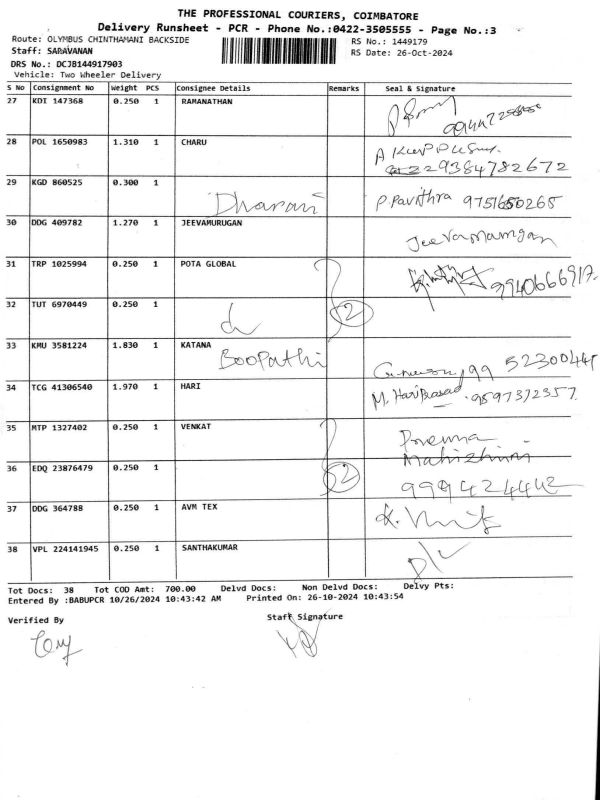 THE PROFESSIONAL COURIERS, COIMBATORE
Delivery Runsheet - PCR - Phone No.:0422-3505555 - Page No.:3
Route: OLYMBUS CHINTHAMANI BACKSIDE RS No.: 1449179
Staff: SARAVANAN RS Date: 26-Oct-2024
DRS No.: DCJB144917903
Vehicle: Two Wheeler Delivery
S No Consignment No Weight PCS Consignee Details Remarks Seal & Signature
27 KDI 147368 0.250 1 RAMANATHAN
28 POL 1650983 1.310 1 CHARU
9384782672
29 KGD 860525 0.300 1
Dharani P. Pavithra
30 DDG 409782 1.270 1 JEEVAMURUGAN
Jeevamurugan
31 TRP 1025994 0.250 1 POTA GLOBAL
9940666917.
32 TUT 6970449 0.250 1 2
33 KMU 3581224 1.830 1 KATANA
Boopathi
34 TCG 41306540 1.970 1 HARI
M. HariPrasad 9597372357.
35 MTP 1327402 0.250 1 VENKAT
Prerna
36 EDQ 23876479 0.250 1 2
9994424442
37 DDG 364788 0.250 1 AVM TEX
38 VPL 224141945 0.250 1 SANTHAKUMAR
Tot Docs: 38 Tot COD Amt: 700.00 Delvd Docs: Non Delvd Docs: Delvy Pts:
Entered By :BABUPCR 10/26/2024 10:43:42 AM Printed On: 26-10-2024 10:43:54
Verified By Staff Signature